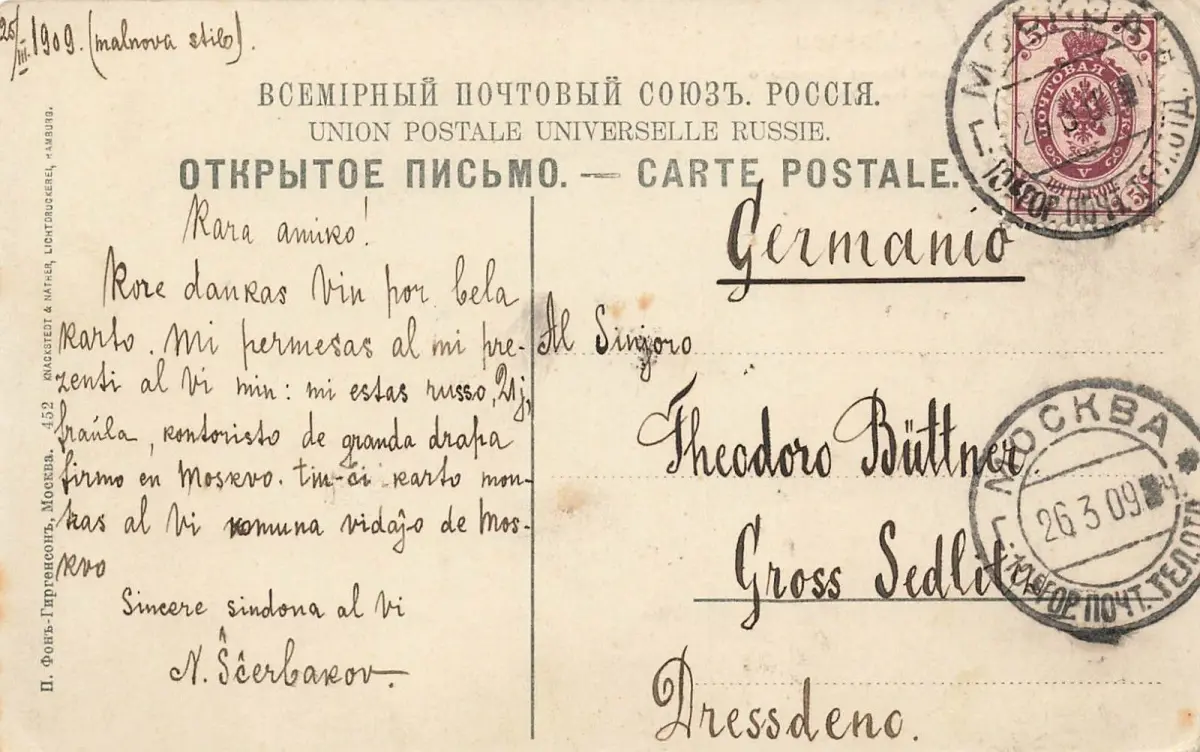 25/III. 1909. (malnova stilo).
ВСЕМІРНЫЙ ПОЧТОВЫЙ СОЮЗЪ. РОССІЯ.
UNION POSTALE UNIVERSELLE RUSSIE.
ОТКРЫТОЕ ПИСЬМО. — CARTE POSTALE.
Kara amiko!
Kore dankas Vin por bela
karto. Mi permesas al mi pre-
zenti al Vi min: mi estas russo, 21j,
fraŭla, kontoristo de granda drapa
firmo en Moskvo. Tiu-ĉi karto mon-
tras al Vi komuna vidaĵo de Mos-
kvo
Sincere sindona al Vi
N. Ŝĉerbakov.
Germanio
Al Sinjoro
Theodoro Büttner
Gross Sedlitz
Dressdeno.
П. Фонъ-Гиргенсонъ, Москва. 452 KNACKSTEDT & NÄTHER, LICHTDRUCKEREI, HAMBURG.
ПОЧТОВАЯ МАРКА
V
5 5
МОСКВА
МОСКВА
26 3 09
ГОР. ПОЧТ. ТЕЛ. ОТД.